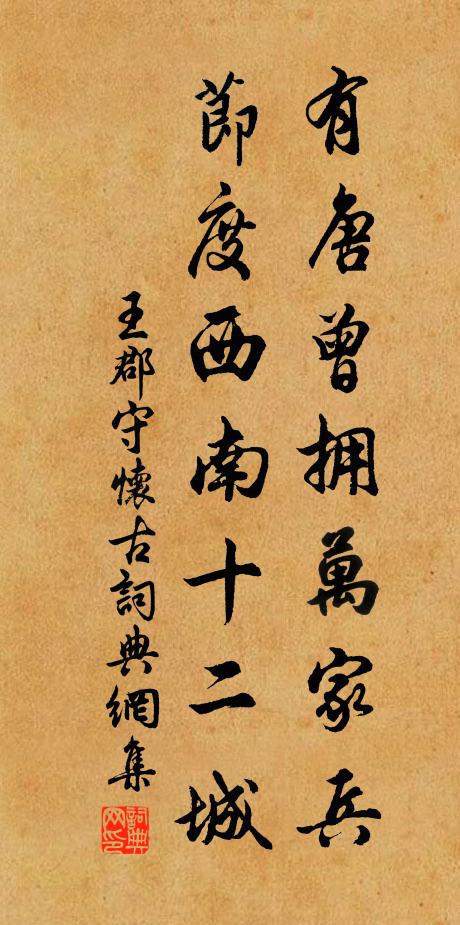 有唐曾拥萬家兵
節度西南十二城
王郡守懷古詞典網集
詞典
网印